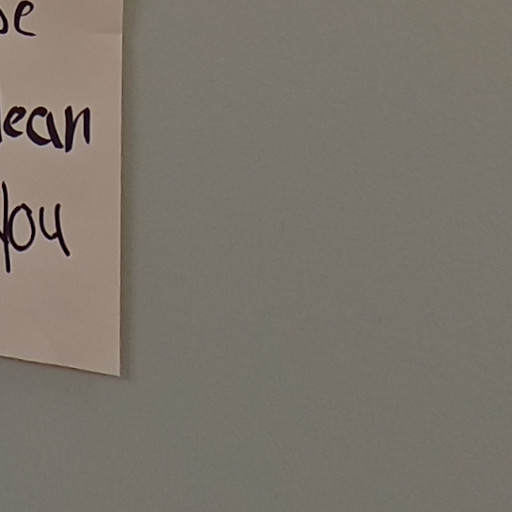 se
lean
You